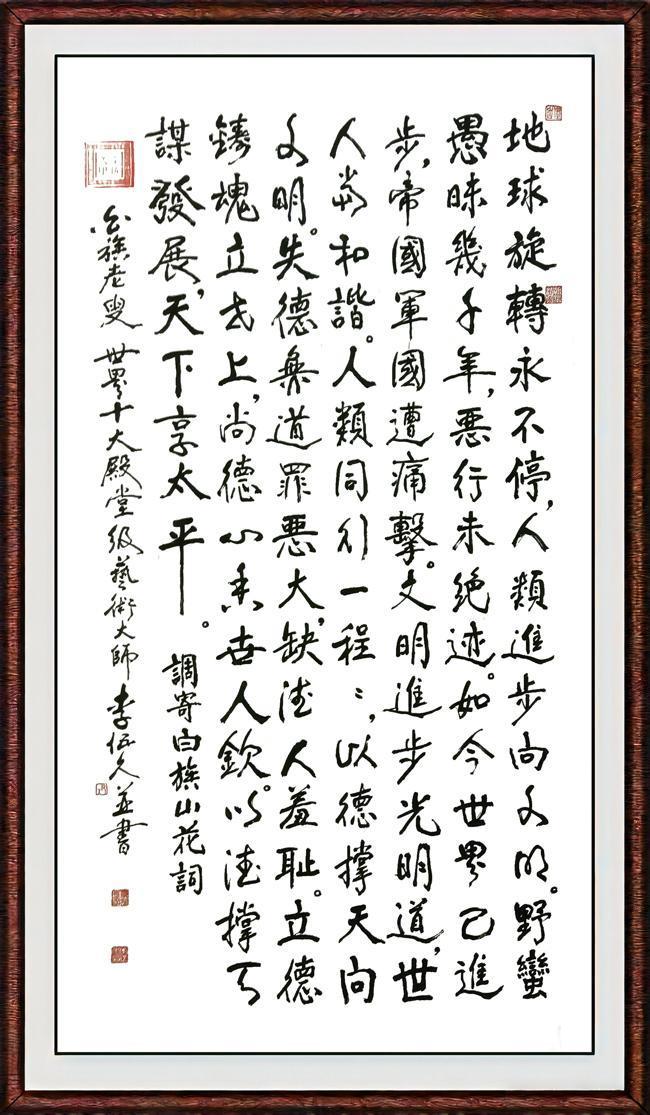 地球旋轉永不停,人類進步向文明。野蠻
愚昧幾千年,悪行未絕迹。如今世界已進
步,帝國軍國遭痛擊。文明進步光明道,世
人和諧。人類同行一程〻,以德撐天向
文明。失德無道罪悪大,缺德人羞恥。立德
鑄魂立世上,尚德心香世人欽。以德撐天
謀發展,天下享太平。
調寄白族山花詞
白族老叟 世界十大殿堂級藝術大師 李伍久並書